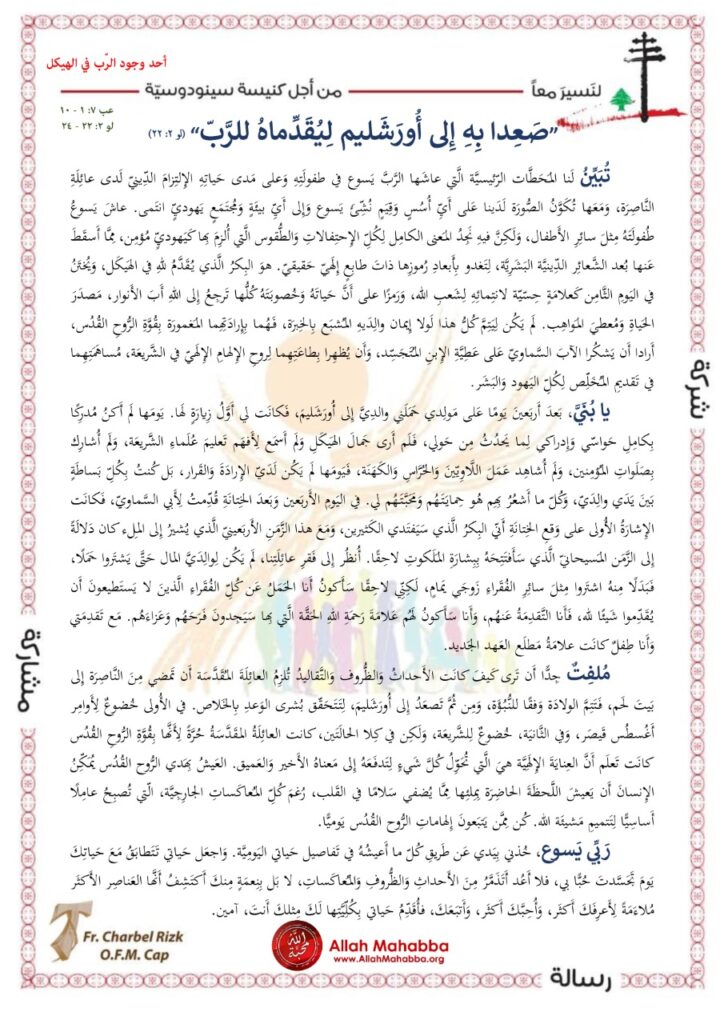 أحد وجود الرّب في الهيكل
لنَسيرَ معاً
من أجل كنيسة سينودوسيّة
عب ٧: ١ - ١٠
لو ٢: ٢٢ - ٢٤
“صَعِدا بِهِ إِلى أُورَشليم لِيُقَدِّماهُ للرَّبّ” (لو ٢: ٢٢)
تُبَيِّنُ لَنا المَحَطَّات الرّئيسيَّة الَّتي عاشَها الرَّبُّ يَسوع في طفولَتِهِ وَعلى مَدى حَياتِهِ الإِلتِزامَ الدِّينيّ لَدى عائِلَةِ
النَّاصِرَة، وَمَعَها تُكوَّنُ الصُّورَة لَدَينا عَلى أَيّ أُسُسٍ وَقِيَمٍ نُشِّئَ يَسوع وَإِلى أَيّ بيئَةٍ وَمُجتَمَعٍ يَهوديّ انتَمى. عاشَ يَسوعُ
طُفولَتَهُ مِثلَ سائِرِ الأَطفال، وَلَكِنَّ فيهِ نَجِدُ المَعنى الكامِل لِكُلّ الإِحتِفالات وَالطُّقوس الَّتي أُلزِمَ بِها كَيَهوديّ مُؤمِن، مِمَّا أَسقَطَ
عَنها بُعد الشَّعائِر الدِّينيَّة البَشَرِيَّة، لِتَغدو بِأَبعادِ رُموزِها ذاتَ طابِعٍ إِلَهيّ حَقيقيّ. هوَ البِكرُ الَّذي يُقَدَّمُ للهِ في الهَيكَل، وَيُختَنُ
في اليَوم الثَّامِن كَعلامَةٍ حِسّيَّة لانتِمائِهِ لِشَعبِ الله، وَرَمزًا على أَنَّ حَياتَهُ وَخُصوبَتَهُ كُلُّها تَرجعُ إِلى اللهِ أَبَ الأَنوار، مَصدَرَ
الحَياةِ وَمُعطيَ المَواهِب. لَم يَكُن لِيَتِمَّ كُلُّ هذا لَولا إِيمان والِدَيهِ المُتَشَبِّع بِالخِبرَة، فَهُما بِإِرادَتِهِما المَغمورَة بِقُوَّةِ الرُّوحِ القُدُس،
أَرادا أَن يَشكُرا الآبَ السَّماويّ عَلى عَطِيَّةِ الإِبنِ المُتَجَسِّد، وَأَن يُظهِرا بِطاعَتِهِما لِروحِ الإِلهام الإِلَهيّ في الشَّريعَة، مُساهَمَتِهِما
في تَقديم المُخَلِّص لِكُلّ اليَهود وَالبَشَر.
يا بُنَيَّ، بَعدَ أَربَعينَ يَومًا عَلى مَولِدي حَمَلَني والِدَيَّ إِلى أُورَشَليمَ، فَكانَت لي أَوَّلُ زِيارَةٍ لَها. يَومَها لَم أَكُنْ مُدرِكًا
بِكامِلِ حَواسّي وَإِدراكي لِما يَحدُثُ مِن حَولي، فَلَم أَرى جَمالَ الهَيكَلِ وَلَم أَسمَع لِأَفهَمَ تَعليمَ عُلَماءِ الشَّريعَة، وَلَم أُشارِك
بِصَلَواتِ المُؤمِنين، وَلَم أُشاهِد عَمَلَ اللَّاوِيّينَ وَالحُرَّاس وَالكَهَنَة، فَيَومَها لَم يَكُن لَدَيّ الإِرادَةَ وَالقَرار، بَل كُنتُ بِكُلّ بَساطَةٍ
بَينَ يَدَي والِدَيّ، وَكُلّ ما أَشعُرُ بِهِم هُوَ حِمايَتَهُم وَمَحَبَّتَهُم لي. في اليَوم الأَربعين وَبَعدَ الخِتانَةِ قُدِّمتُ لِأَبي السَّماويّ، فَكانَت
الإِشارَةُ الأُولى عَلى وَقعِ الخِتانَةِ أَنّي البِكرُ الَّذي سَيَفتَدي الكَثيرين، وَمَعَ هذا الزَّمَنِ الأَربَعينيّ الَّذي يُشيرُ إِلى المِلء كان دَلالَةً
إِلى الزَّمَن المَسيحانيّ الَّذي سَأَفتَتِحَهُ بِبِشارَةِ المَلَكوتِ لاحِقًا. أُنظُر إِلى فَقرِ عائِلَتِنا، لَم يَكُن لِوالِدَيَّ المال حَتَّى يَشتَروا حَمَلًا،
فَبَدَلًا مِنهُ اشتَروا مِثلَ سائِرِ الفُقَراءِ زَوجَي يَمام، لَكِنّي لاحِقًا سَأَكونُ أَنا الحَمَلُ عَن كُلّ الفُقَراءِ الَّذينَ لا يَستَطيعونَ أَن
يُقَدِّموا شَيئًا لله، فَأَنا التَّقدِمَةُ عَنهُم، وَأَنا سَأَكونُ لَهُم عَلامَةَ رَحمَةِ اللهِ الحَقَّة الَّتي بِها سَيَجِدونَ فَرَحَهُم وَعَزاءَهُم. مَع تَقدِمَتي
وَأَنا طِفلٌ كانَت عَلامَةُ مَطلَعِ العَهدِ الجَديد.
مُلفِتٌ جدًّا أَن تَرى كَيفَ كانَت الأَحداثُ وَالظُّروف وَالتَّقاليدُ تُلزِمُ العائِلَةَ المُقَدَّسَة أَن تَمضي مِنَ النَّاصِرَة إِلى
بَيتَ لَحم، فَتَتِمَّ الوِلادَة وَفقًا للنُّبُوَّة، وَمِن ثُمَّ تَصعَدُ إِلى أُورَشَليمَ، لِتَتَحَقَّق بُشرى الوَعدِ بِالخَلاص. في الأُولى خُضوعٌ لِأَوامِرِ
أَغُسطُس قَيصَر، وَفي الثَّانيَة، خُضوعٌ للشَّريعَة، وَلَكِن في كِلا الحالَتَين، كانَت العائِلَةُ المُقَدَّسَةُ حُرَّةً لِأَنَّها بِقُوَّةِ الرُّوح القُدُس
كانَت تَعلَم أَنَّ العِنايَةَ الإِلَهيَّة هيَ الَّتي تُحَوِّل كُلَّ شَيءٍ لِتَدفَعهُ إِلى مَعناهُ الأَخيرِ وَالعَميق. العَيشُ بِهَدي الرُّوح القُدُس يُمَكِّنُ
الإِنسانَ أَن يَعيشَ اللَّحظَةَ الحاضِرَةَ بِمِلئِها مِمَّا يُضفي سَلامًا في القَلب، رُغمَ كُلّ المُعاكَساتِ الخارِجيَّة، الّتي تُصبِحُ عامِلًا
أَساسِيًّا لِتَتميم مَشيئَة الله. كُن مِمَّن يَتبَعونَ إِلهاماتِ الرُّوح القُدُس يَوميًّا.
رَبّي يَسوع، خُذني بِيَدي عَن طَريقِ كُلّ ما أَعيشُهُ في تَفاصيل حَياتي اليَوميَّة. وَاجعَل حَياتي تَتَطابَقُ مَعَ حَياتِكَ
يَومَ تَجَسَّدتَ حُبًّا بي، فلا أَعُد أَتَذَمَّرُ مِنَ الأَحداثِ وَالظُّروف وَالمُعاكَساتِ، لا بَل بِنِعمَةٍ مِنكَ أَكتَشِفُ أَنَّها العَناصِر الأَكثَر
مُلاءَمَةً لِأَعرِفَكَ أَكثَر، وَأُحِبَّكَ أَكثَر، وَأَتبَعَكَ، فَأُقَدِّمُ حَياتي بِكُلِّيَّتِها لَكَ مِثلِكَ أَنتَ، آمين.
شركة
مشاركة
رسالة
Fr. Charbel Rizk
O.F.M. Cap
الله محبة
Allah Mahabba
www.AllahMahabba.org